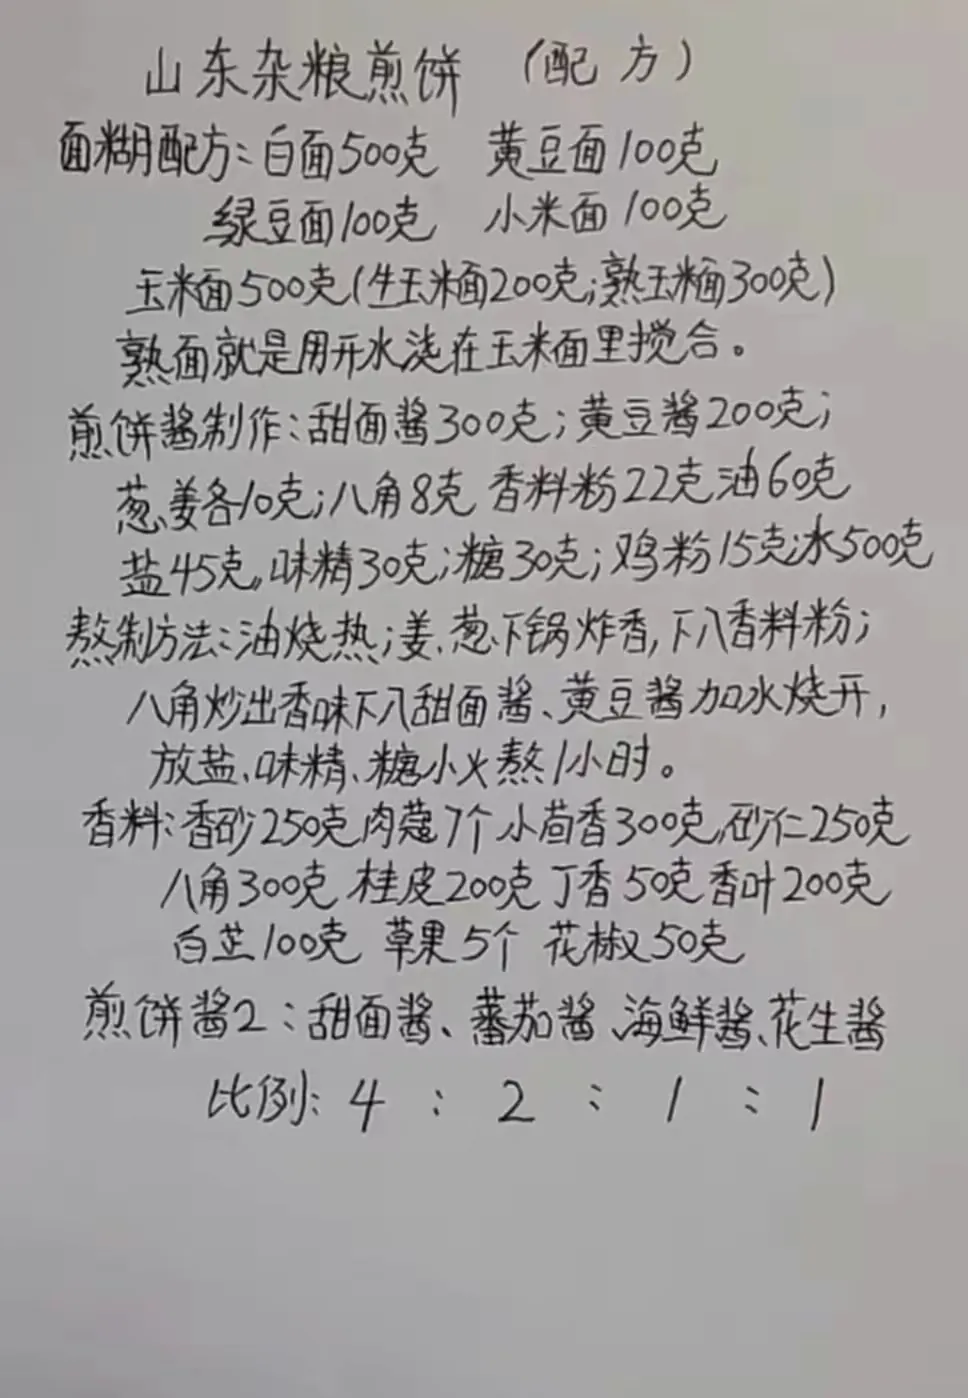 山东杂粮煎饼 (配方)
面糊配方:白面500克 黄豆面100克
绿豆面100克 小米面100克
玉米面500克(生玉米面200克;熟玉米面300克)
熟面就是用开水浇在玉米面里搅合。
煎饼酱制作:甜面酱300克;黄豆酱200克;
葱、姜各10克;八角8克 香料粉22克油60克
盐45克,味精30克;糖30克;鸡粉15克;水500克
熬制方法:油烧热;姜、葱下锅炸香,下入香料粉;
八角炒出香味下入甜面酱、黄豆酱加水烧开,
放盐、味精、糖小火熬1小时。
香料:香砂250克,肉蔻7个 小茴香300克,砂仁250克
八角300克 桂皮200克 丁香50克 香叶200克
白芷100克 草果5个 花椒50克
煎饼酱2:甜面酱、蕃茄酱、海鲜酱、花生酱
比例:4:2:1:1